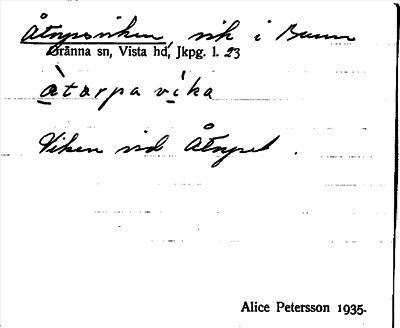 Åtorpsviken, vik i Bunn
Gränna sn, Vista hd, Jkpg. l. 23
àtarpa víka
Viken vid Åtorpet.
Alice Petersson 1935.